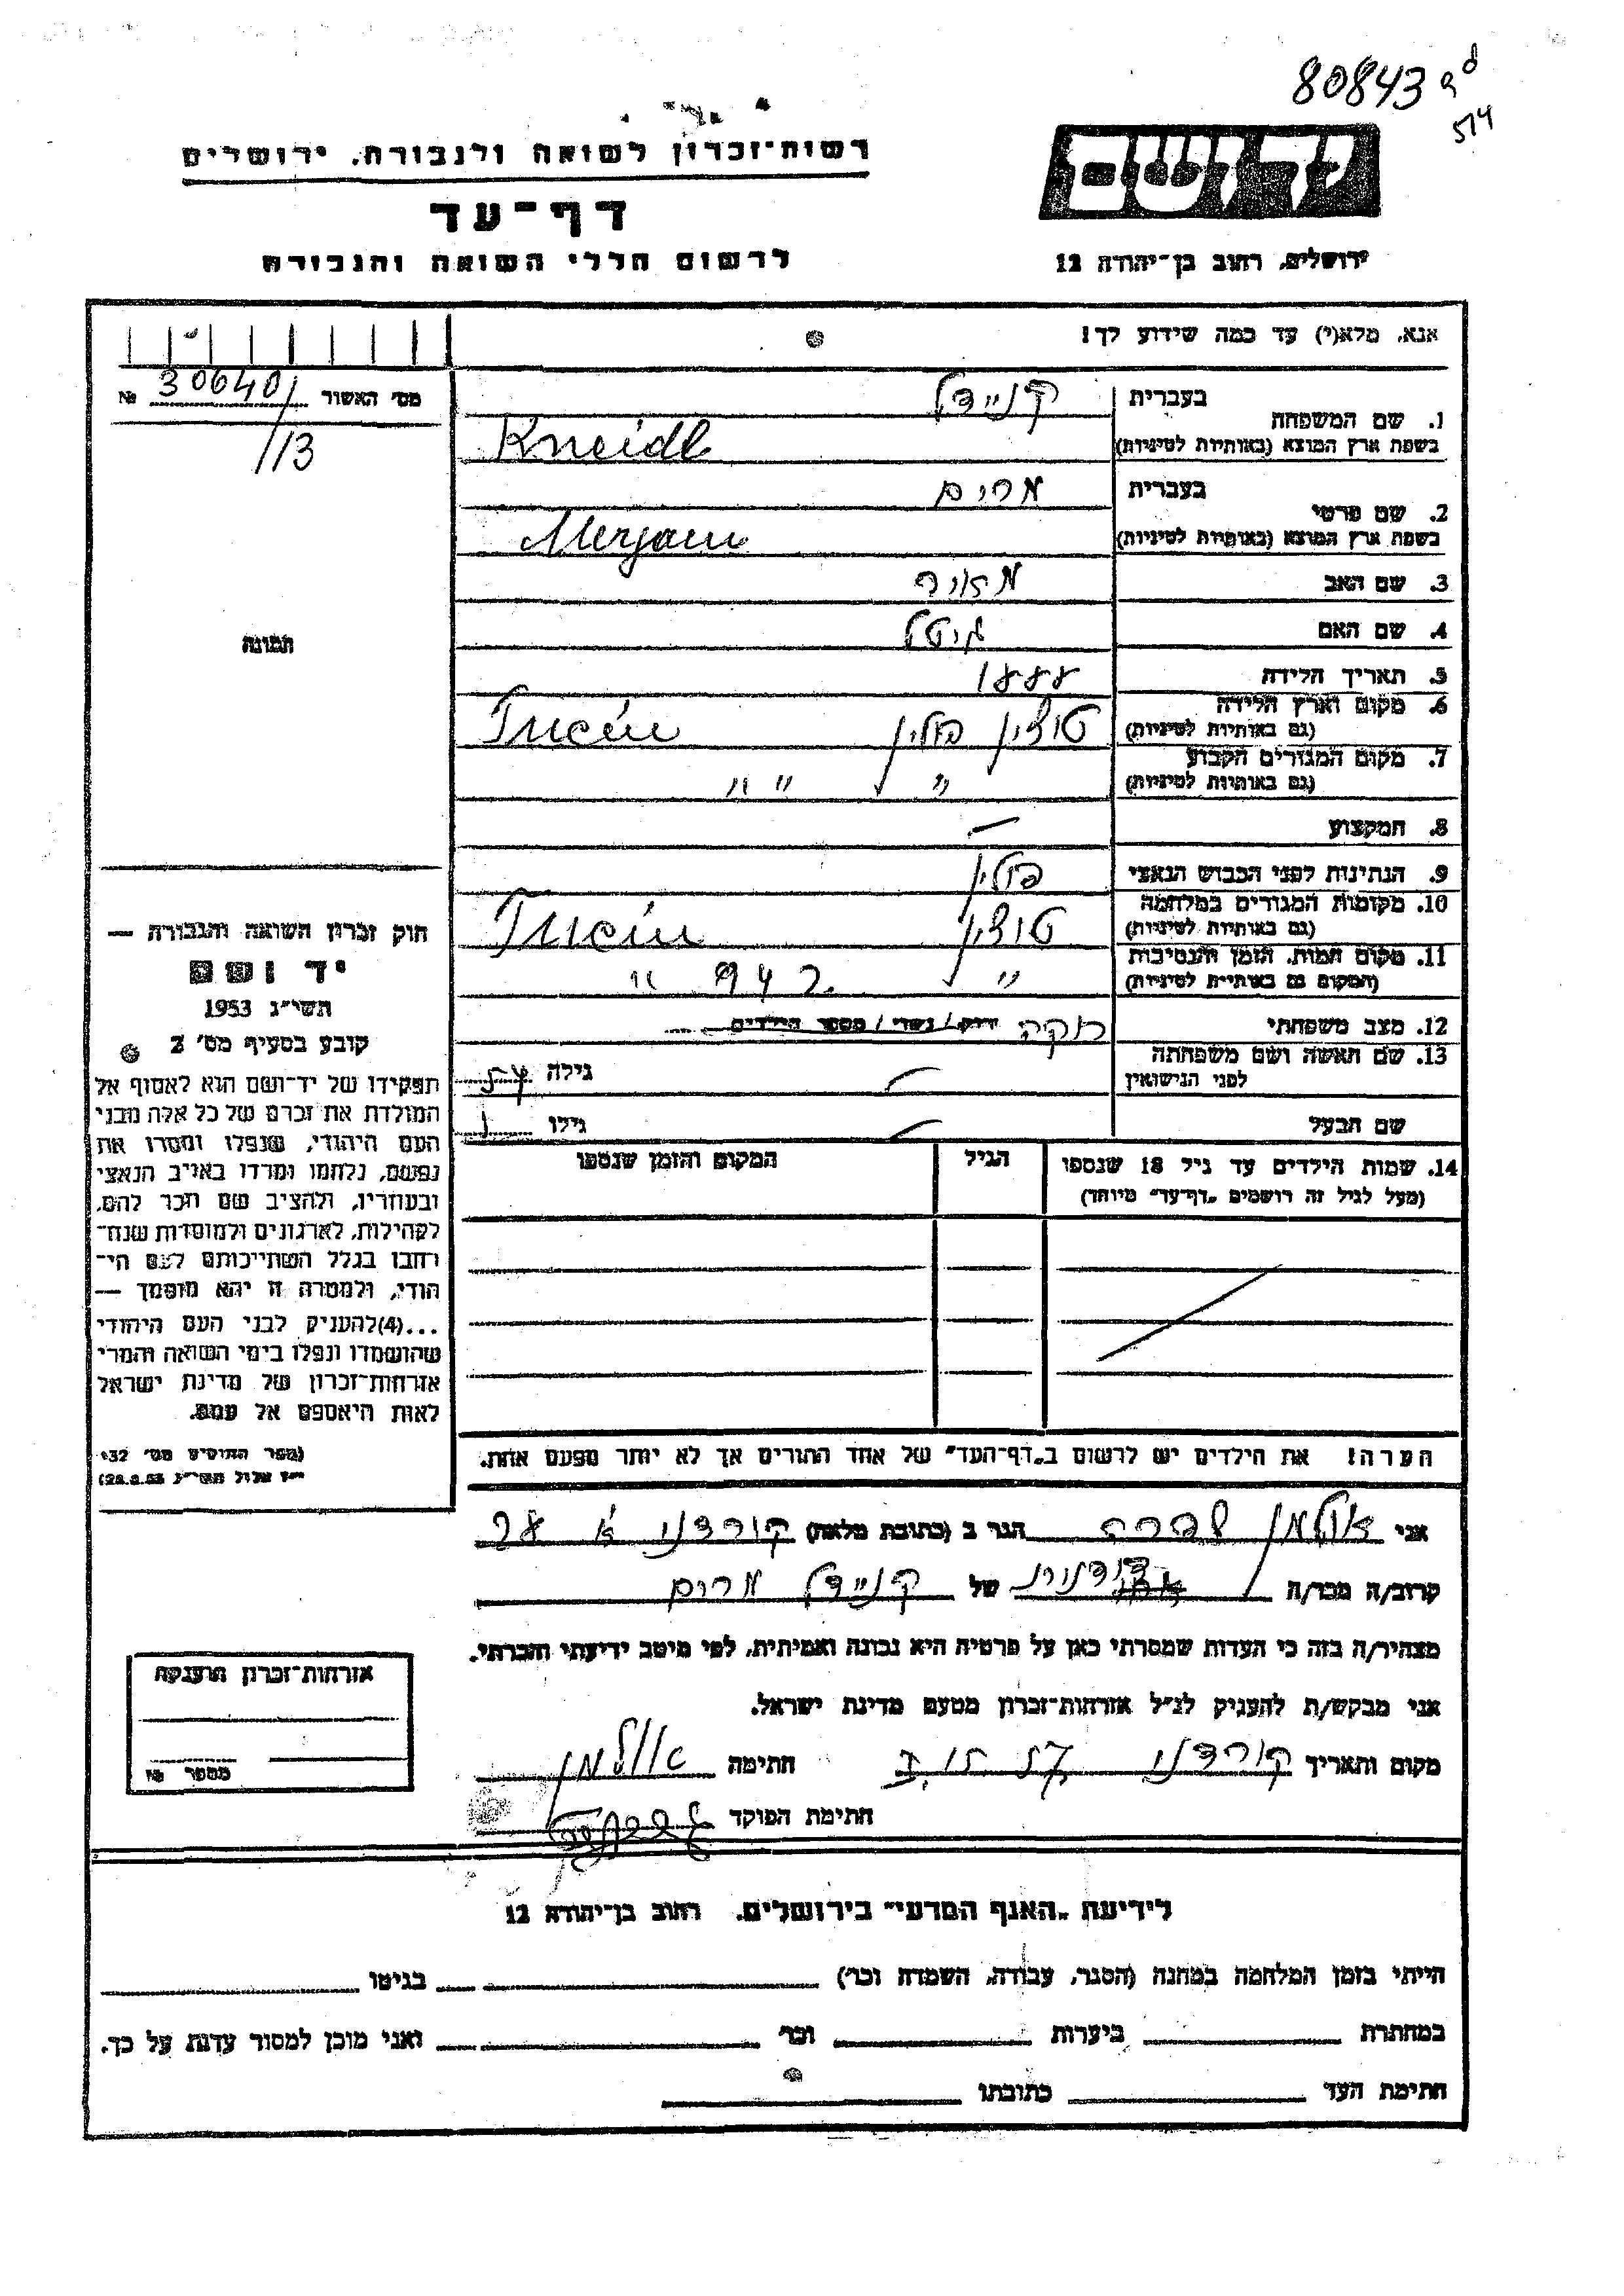 80843
514
רשות־זכרון לשואה ולגבורה, ירושלים
דף־עד
לרשום חללי השואה והגבורה
יד ושם
ירושלים, רחוב בן־יהודה 12
אנא, מלא(י) עד כמה שידוע לך!
מס' האשור 306401 №
113
תמונה
1. שם המשפחה בעברית קניידל
בשפת ארץ המוצא (באותיות לטיניות) Kneidl
2. שם פרטי בעברית מרים
בשפת ארץ המוצא (באותיות לטיניות) Merjam
3. שם האב מאיר
4. שם האם גיטל
5. תאריך הלידה 1888
6. מקום וארץ הלידה (גם באותיות לטיניות) טוצין פולין Tucin
7. מקום המגורים הקבוע (גם באותיות לטיניות) " " "
8. המקצוע —
9. הנתינות לפני הכבוש הנאצי פולין
10. מקומות המגורים במלחמה (גם באותיות לטיניות) טוצין Tucin
11. מקום המות, הזמן והנסיבות (המקום גם באותיות לטיניות) " 942 "
12. מצב משפחתי רווק / נשוי / מספר הילדים
13. שם האשה ושם משפחתה לפני הנישואין — גילה 54
שם הבעל — גילו
14. שמות הילדים עד גיל 18 שנספו הגיל המקום והזמן שנספו
(מעל לגיל זה רושמים „דף־עד" מיוחד)
הערה! את הילדים יש לרשום ב„דף־העד" של אחד ההורים אך לא יותר מפעם אחת.
חוק זכרון השואה והגבורה —
יד ושם
תשי"ג 1953
קובע בסעיף מס' 2
תפקידו של יד־ושם הוא לאסוף אל
המולדת את זכרם של כל אלה מבני
העם היהודי, שנפלו ומסרו את
נפשם, נלחמו ומרדו באויב הנאצי
ובעוזריו, ולהציב שם וזכר להם,
לקהילות, לארגונים ולמוסדות שנח־
רבו בגלל השתייכותם לעם הי־
הודי, ולמטרה זו יהא מוסמך —
...(4)להעניק לבני העם היהודי
שהושמדו ונפלו בימי השואה והמרי
אזרחות־זכרון של מדינת ישראל
לאות היאספם אל עמם.
(ספר החוקים מס' 132,
י"ז אלול תשי"ג 28.8.53)
אני אולמן הגר ב (כתובת מלאה) קורדני א
קרוב/ה מכר/ה של קניידל מרים
מצהיר/ה בזה כי העדות שמסרתי כאן על פרטיה היא נכונה ואמיתית, לפי מיטב ידיעתי והכרתי.
אני מבקש/ת להעניק לנ"ל אזרחות־זכרון מטעם מדינת ישראל.
מקום ותאריך קורדני חתימה אולמן
חתימת הפוקד
אזרחות־זכרון הוענקה
מספר №
לידיעת „האגף המדעי" בירושלים, רחוב בן־יהודה 12
הייתי בזמן המלחמה במחנה (הסגר, עבודה, השמדה וכו') בגיטו
במחתרת ביערות וכו' ואני מוכן למסור עדות על כך.
חתימת העד כתובתו